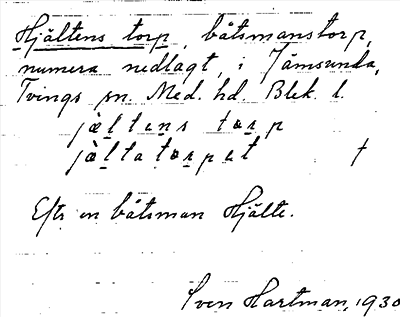 Hjältens torp, båtsmanstorp,
numera nedlagt, i Jämsunda,
Tvings sn. Med. hd. Blek. l.
jæltens torp
jæ̀ltatorpet †
Efter en båtsman Hjälte.
Sven Hartman, 1930